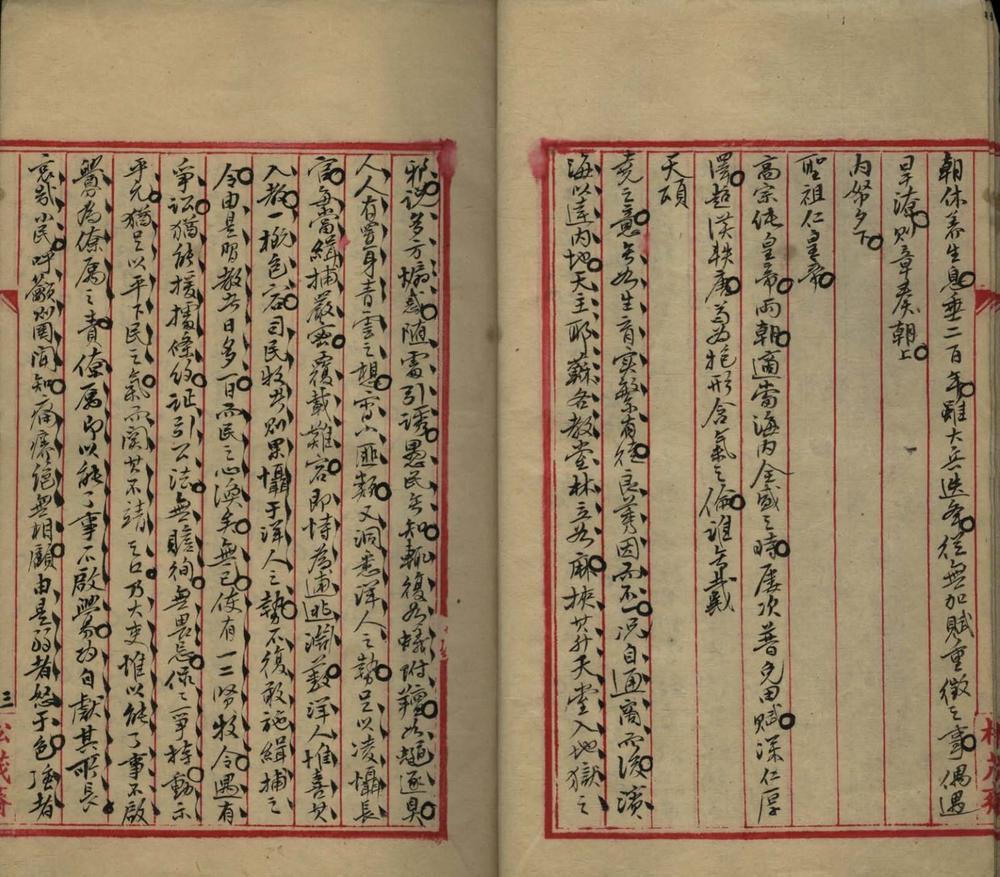 朝休養生息垂二百年雖大兵迭
從無加賦重徵之事偶遇
旱潦則章奏朝上
內帑夕下
聖祖仁皇帝
高宗純皇帝兩朝適當海內全盛之時屢次普免田賦深仁厚
澤超漢軼唐為抱形含氣之倫誰不共戴
天頭
堯之意無如生育實繁有徒良莠因而不一況自通商而後濱
海以達內地天主耶蘇各教堂林立如麻挾其升天堂入地獄之
邪說多方煽惑隨處引誘愚民無知輒復如蟻附羶如蠅逐臭
人人有置身青雲之想而小匪類又洞悉洋人之勢足以凌懾長
官遇當緝捕嚴密覆載難容即恃為逋逃淵藪洋人惟喜其
入教一概包容司民牧者則果懾于洋人之勢不復敢施緝捕之
令由是習教者日多一日而民之心渙矣無已使有一二賢牧令遇有
爭訟猶能援據條約証引公法無瞻徇無畏忌保之爭持動示
平允猶足以平下民之氣而關其不靖之口乃大吏惟以能了事不啟
釁為僚屬之責僚屬即以能了事不啟釁為功自獻其所長
哀哉小民呼籲則罔聞知痛癢絕無相顧由是弱者怒于色强者
三
松茂齋